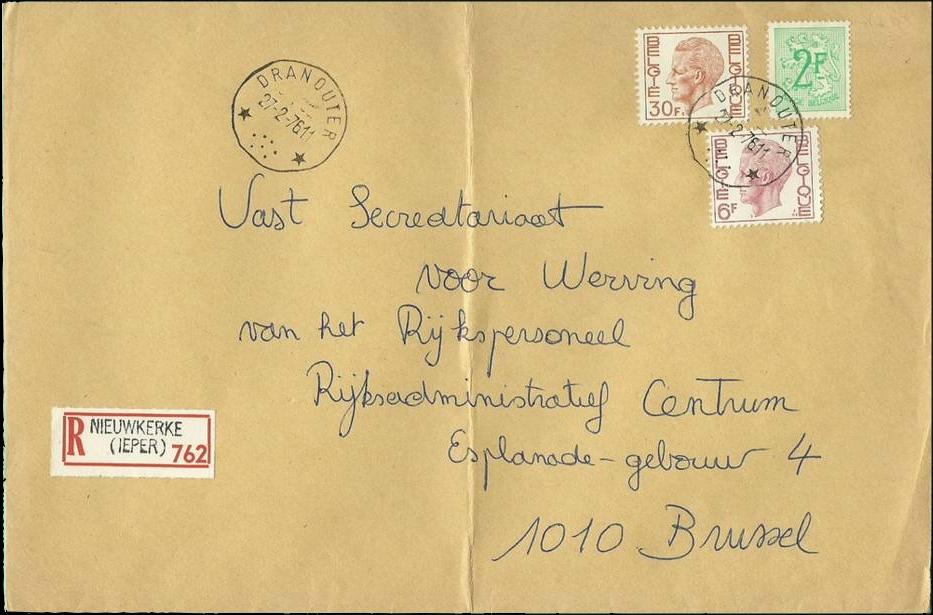 DRANOUTER
27-2-76 11
BELGIE
BELGIQUE
30F
2F
BELGIQUE
DRANOUTER
27-2-76 11
BELGIE
BELGIQUE
6F
Vast Secretariaat
voor Werving
van het Rijkspersoneel
Rijksadministratief Centrum
Esplanade-gebouw 4
1010 Brussel
R NIEUWKERKE
(IEPER) 762